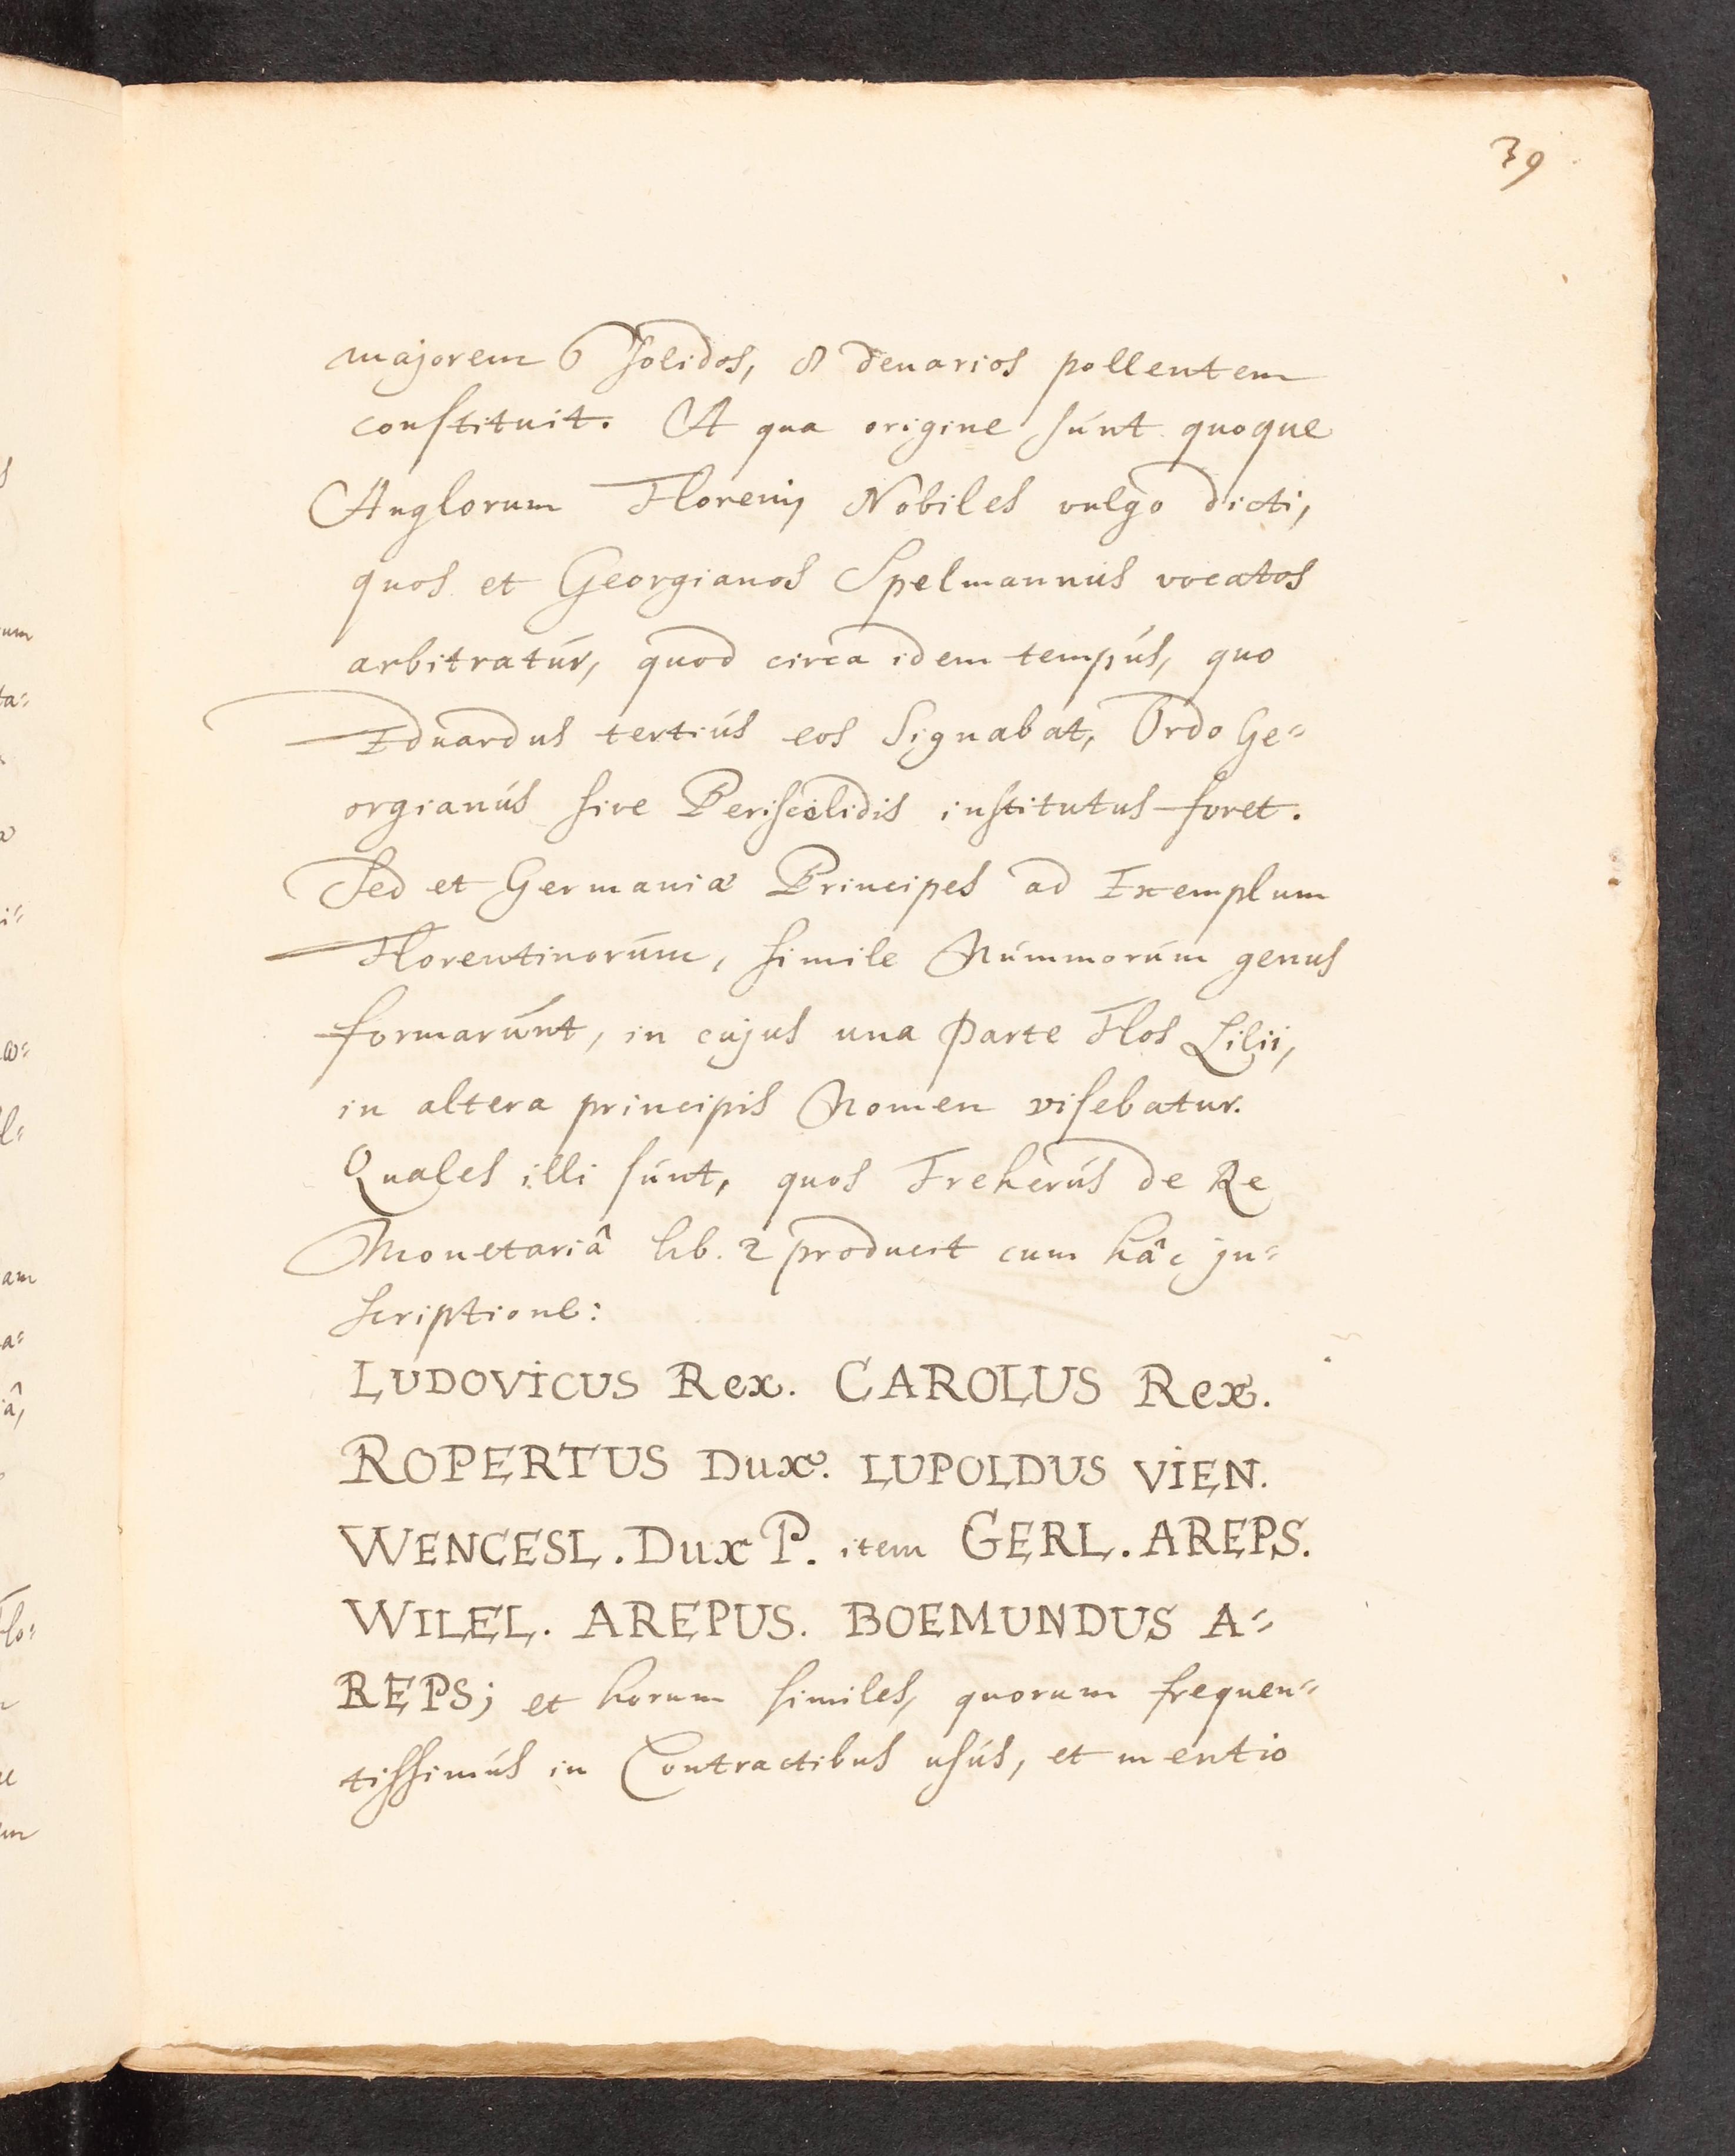 39
majorem 6 solidos, 8 denarios pollentem
constituit. A qua origine súnt quoque
Anglorum Florenij Nobiles vulgo dicti,
quos et Georgianos Spelmannús vocatos
arbitratúr, quod circa idem tempús, quo
Eduardus tertiús eos Signabat, Ordo Ge=
orgianús sive Periscelidis institutus foret.
Sed et Germaniæ Principes ad Exemplum
Florentinorúm, simile Númmorúm genus
formarúnt, in cujus una Parte Flos Lilii,
in altera principis Nomen visebatur.
Quales illi súnt, quos Freherús de Re
Monetariâ lib. 2 producit cum hâc jn=
scriptione:
LUDOVICUS Rex. CAROLUS Rex.
ROPERTUS Dux. LUPOLDUS VIEN.
WENCESL. Dux P. item GERL. AREPS.
WILEL. AREPUS. BOEMUNDUS A=
REPS; et horum similes, quorum frequen=
tissimús in Contractibus usús, et mentio